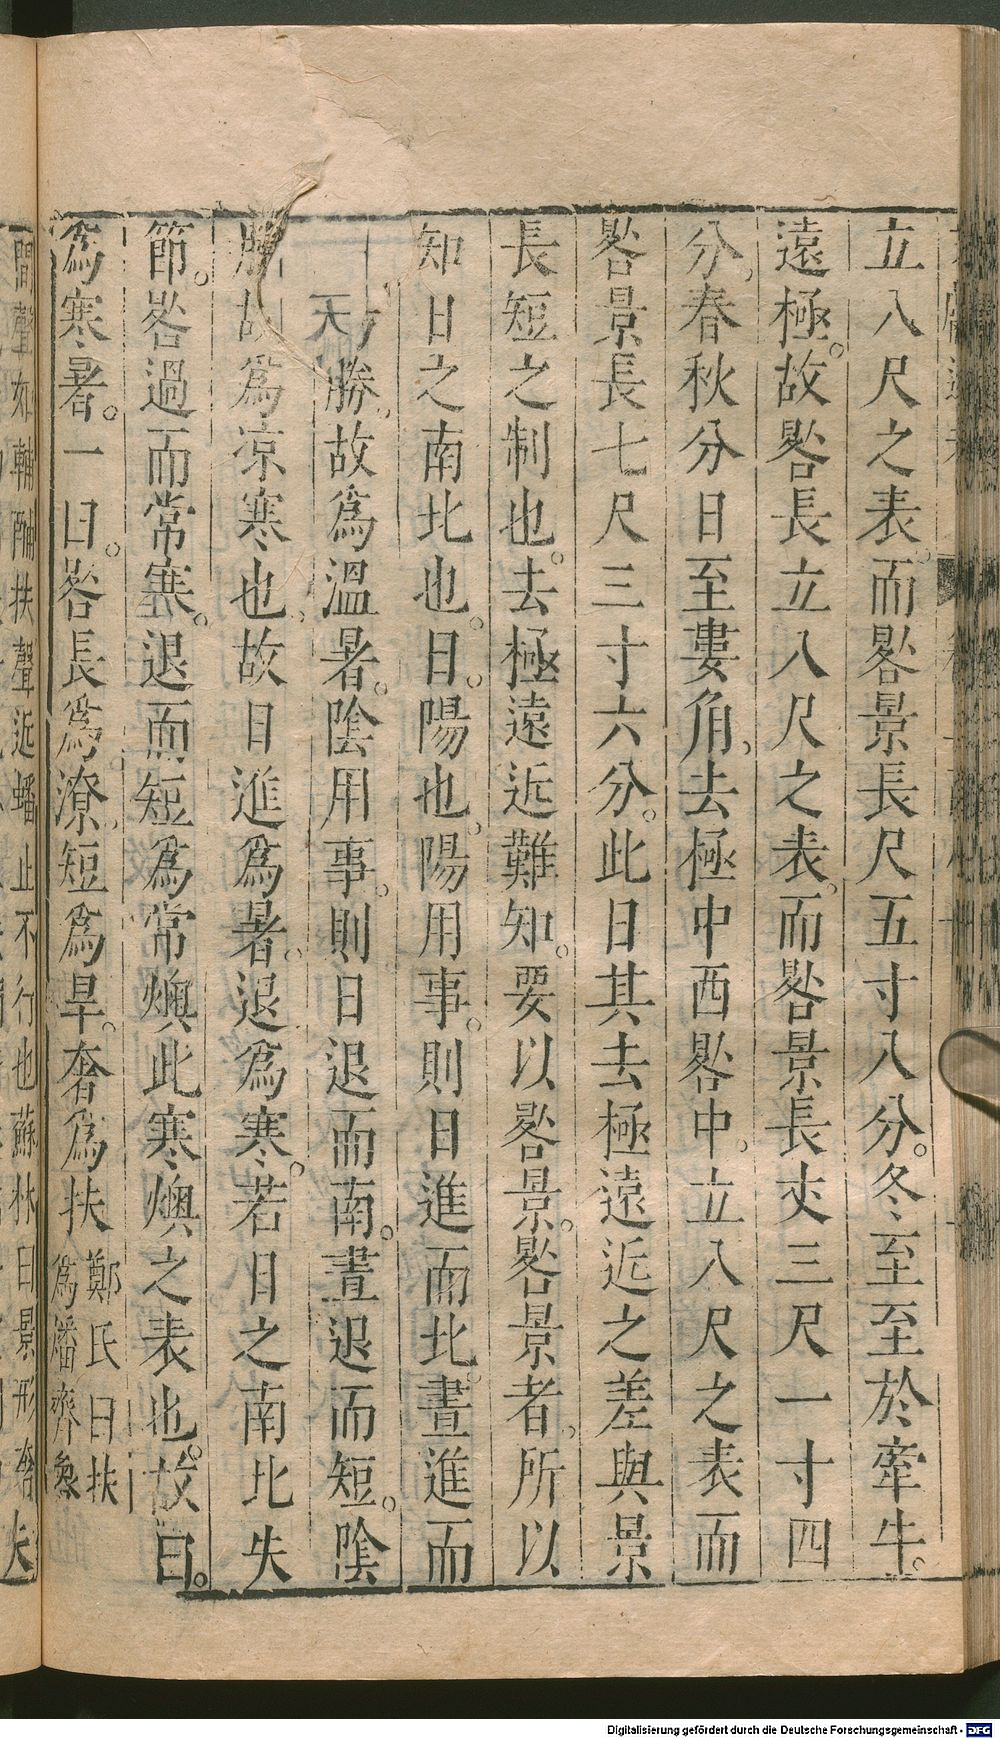 立八尺之表。而晷景長尺五寸八分。冬至至於牽牛。
遠極。故晷長立八尺之表。而晷景長丈三尺一寸四
分。春秋分日至婁角。去極中西晷中。立八尺之表而
晷景長七尺三寸六分。此日其去極遠近之差與景
長短之制也。去極遠近難知。要以晷景。晷景者。所以
知日之南北也。日。陽也。陽用事。則日進而北。晝進而
天
勝。故爲溫暑。陰用事。則日退而南。晝退而短。陰
勝故爲凉寒也。故日進爲暑。退爲寒。若日之南北失
節。晷過而常寒。退而短爲常燠此寒燠之表也。故曰。
爲寒暑。一曰。晷長爲潦。短爲旱。奢爲扶
鄭氏曰扶
爲燔齊魯
間聲如輔酺扶聲近蟠止不行也蘇林曰景形奢大
Digitalisierung gefördert durch die Deutsche Forschungsgemeinschaft - DFG